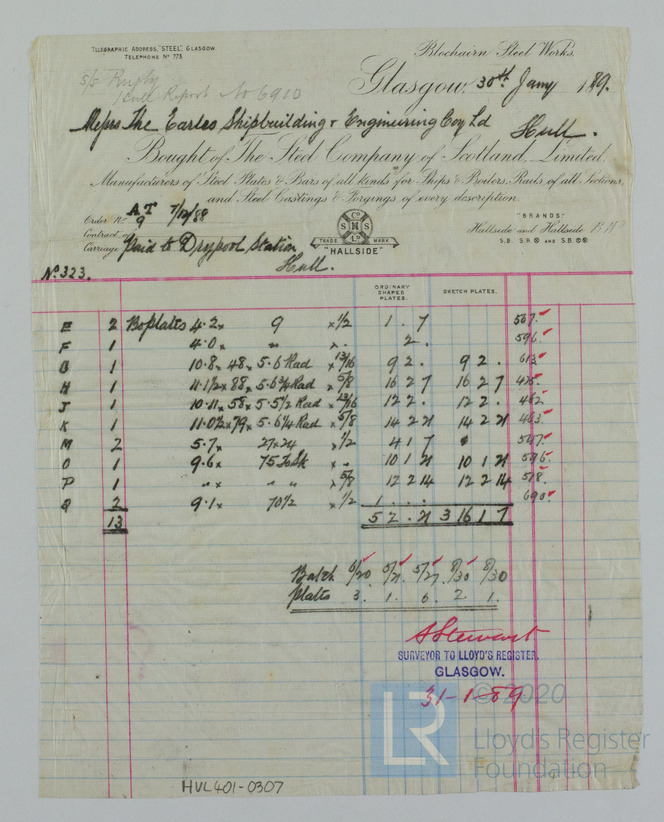 TELEGRAPHIC ADDRESS, "STEEL", GLASGOW.
TELEPHONE Nº 773
Blochairn Steel Works.
S/S Rugby
Hull Report No 6910
Glasgow, 30th Jany 1889.
Messrs The Earles Shipbuilding & Engineering Coy Ld Hull.
Bought of The Steel Company of Scotland, Limited.
Manufacturers of Steel Plates & Bars of all kinds for Ships & Boilers, Rails of all Sections,
and Steel Castings & Forgings of every description.
Order Nº A T 9 7/12/88
Contract of
Carriage paid to Drypool Station
Hull.
Cº S N S Lº
TRADE MARK
"HALLSIDE"
"BRANDS"
Hallside and Hallside
S.B. S.R. AND S.B.
Nº 323.
ORDINARY SHAPED PLATES. SKETCH PLATES.
E 2 Bo plates 4.2 x 9 x 1/2 1 . 7 567
F 1 4.0 x " x " 2 . 596
G 1 10.8 x 48 x 5.6 Rad x 13/16 9 2 . 9 2 . 613
H 1 11.1 1/2 x 88 x 5.6 3/4 Rad x 5/8 16 2 7 16 2 7 475
J 1 10.11 x 58 x 5.5 1/2 Rad x 13/16 12 2 . 12 2 . 482
K 1 11.0 1/2 x 79 x 5.6 1/4 Rad x 5/8 14 2 21 14 2 21 463
M 2 5.7 x 27 x 24 x 1/2 4 1 7 567
O 1 9.6 x 75 To Sk x " 10 1 21 10 1 21 596
P 1 " x " " x 5/8 12 2 14 12 2 14 578
Q 2 9.1 x 70 1/2 x 1/2 1 . . . 690
13 5 2 . 21 3 16 1 7
Batch 6/20 5/21 5/27 8/30 8/30
plates 3. 1. 6. 2 1.
A Stewart
SURVEYOR TO LLOYD'S REGISTER,
GLASGOW.
31-1-89
© 2020
LR
Lloyd's Register
Foundation
HVL401-0307